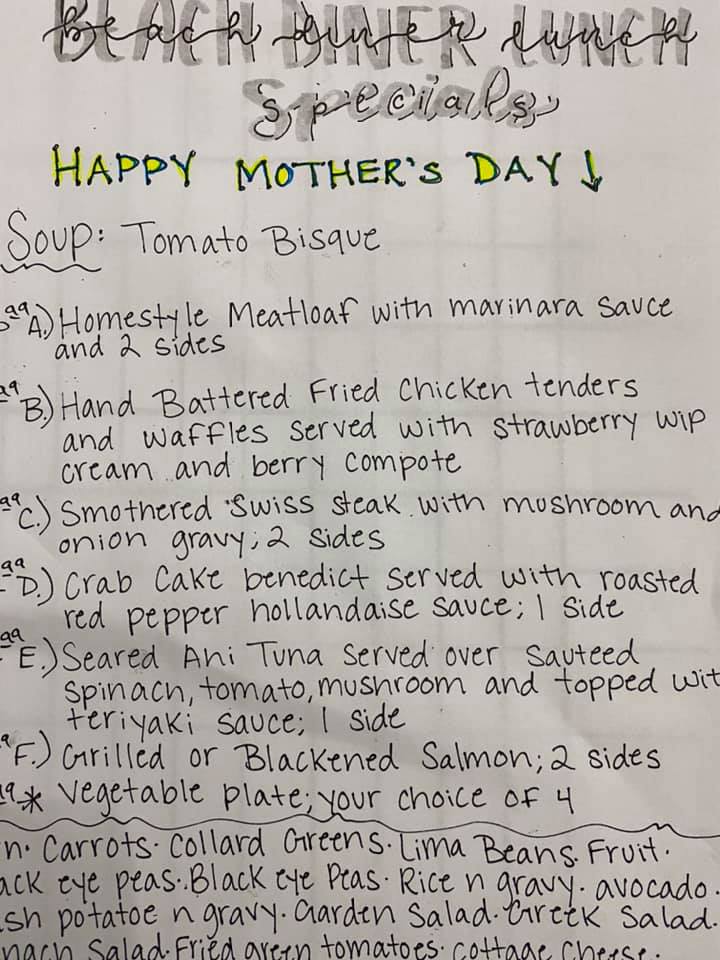 BEACH DINER LUNCH
Specials
HAPPY MOTHER'S DAY ↓
Soup: Tomato Bisque
99 A.) Homestyle Meatloaf with marinara sauce
and 2 sides
99 B.) Hand Battered Fried Chicken tenders
and waffles served with strawberry wip
cream and berry compote
99 C.) Smothered Swiss steak with mushroom and
onion gravy; 2 sides
99 D.) Crab Cake benedict served with roasted
red pepper hollandaise sauce; 1 side
99 E.) Seared Ahi Tuna served over sauteed
spinach, tomato, mushroom and topped wit
teriyaki sauce; 1 side
9 F.) Grilled or Blackened Salmon; 2 sides
99 * Vegetable plate; your choice of 4
n. Carrots. Collard Greens. Lima Beans. Fruit.
ack eye peas. Black eye Peas. Rice n gravy. avocado.
sh potatoe n gravy. Garden Salad. Greek Salad.
nach Salad. Fried green tomatoes. cottage cheese.